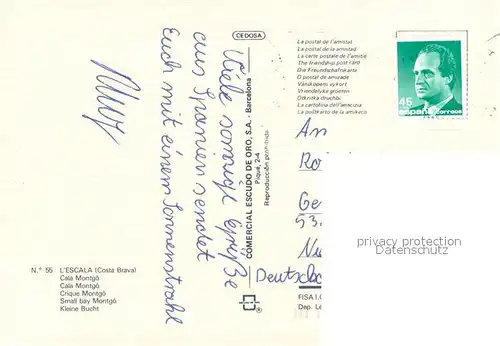 Viele sonnige Grüße
aus Spanien sendet
Euch mit einem Sonnenstrahl
N.° 55 L'ESCALA (Costa Brava)
Cala Montgó
Cala Montgó
Crique Montgó
Small bay Montgó
Kleine Bucht
CEDOSA
COMERCIAL ESCUDO DE ORO, S.A. - Barcelona
Piqué, 2-4
Reproducción prohibida
La postal de l'amistat
La postal de la amistad
La carte postale de l'amitié
The friendship post card
Die Freundschaftskarte
O postal de amizade
Vänskapens vykort
Vriendelijke groeten
Otkritka druchbi
La cartolina dell'amicizia
La poŝtkarto de la amikeco
45
España Correos
An
Ro
Ge
53.
Nu
Deutschla
privacy protection
Datenschutz
FISA I.G
Dep. Le
®